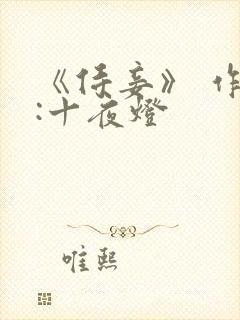 《侯妾》 作
:十夜燈
唯熙